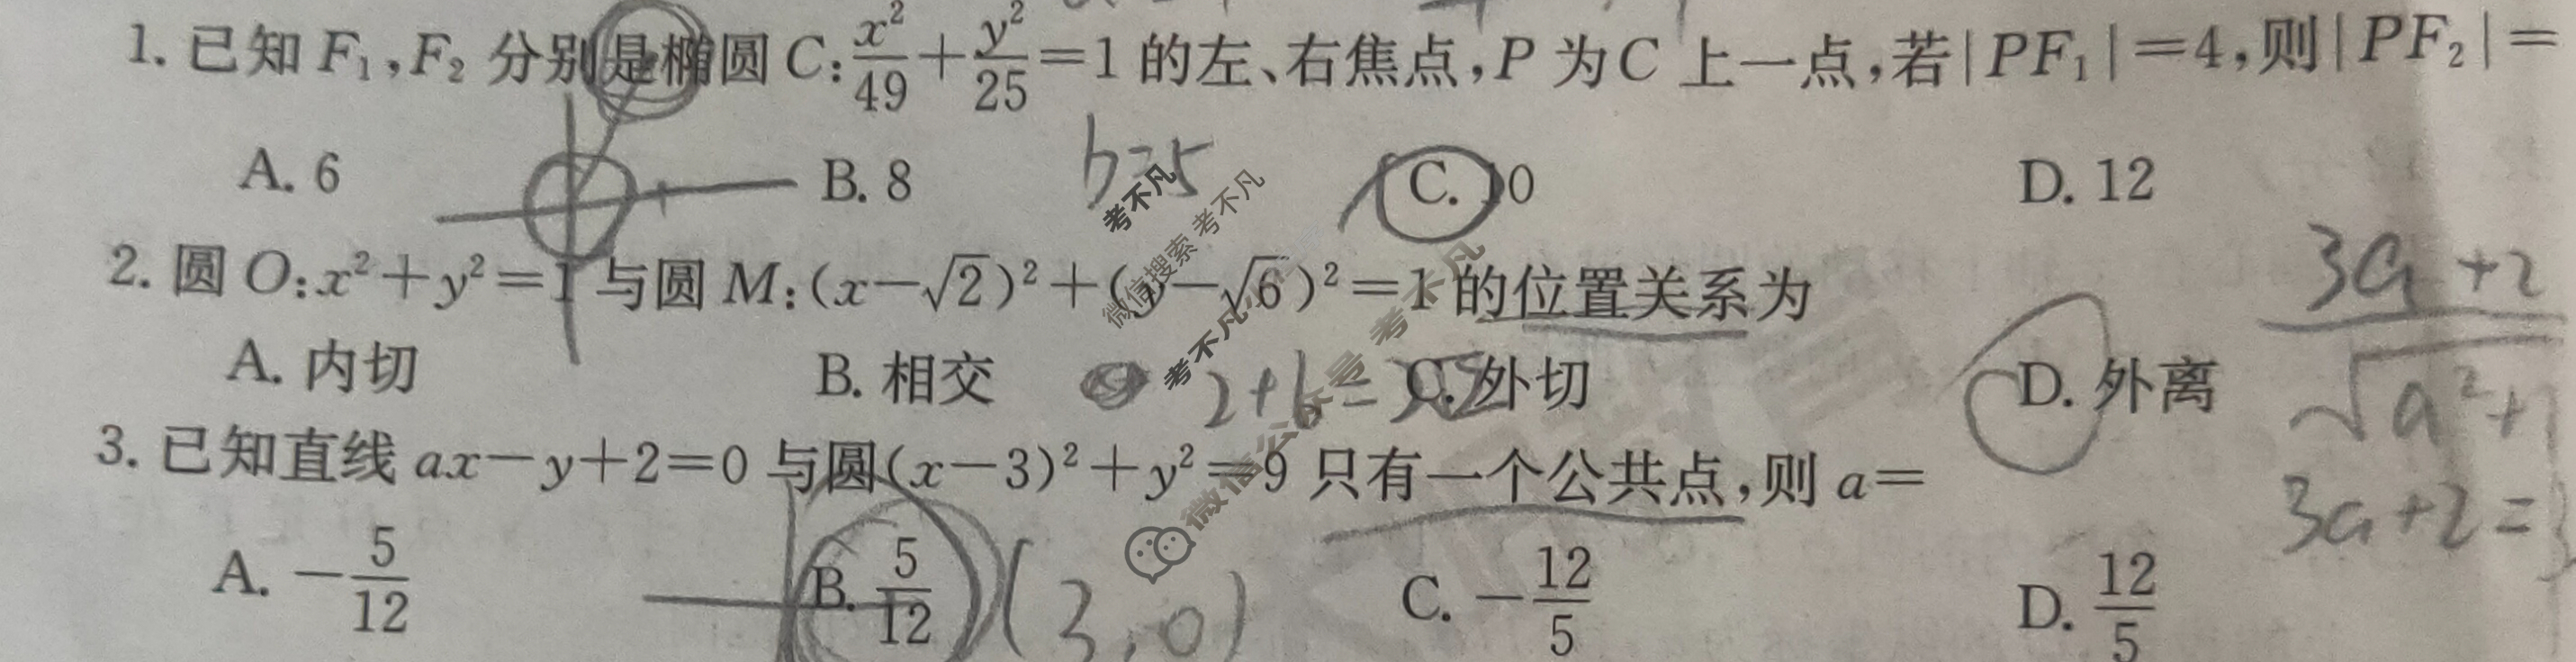 1. 已知 F₁,F₂ 分别是椭圆 C:x²/49+y²/25=1 的左、右焦点,P 为 C 上一点,若|PF₁|=4,则|PF₂|=
A. 6 B. 8 C. 10 D. 12
b=5
考不凡
微信搜索 考不凡
2. 圆 O:x²+y²=1 与圆 M:(x-√2)²+(y-√6)²=1 的位置关系为
3a+2
A. 内切 B. 相交 C. 外切 D. 外离
2+6=
√a²+1
考不凡
微信公众号 考不凡
3. 已知直线 ax-y+2=0 与圆(x-3)²+y²=9 只有一个公共点,则 a=
3a+2=3
A. -5/12 B. 5/12 C. -12/5 D. 12/5
(3,0)